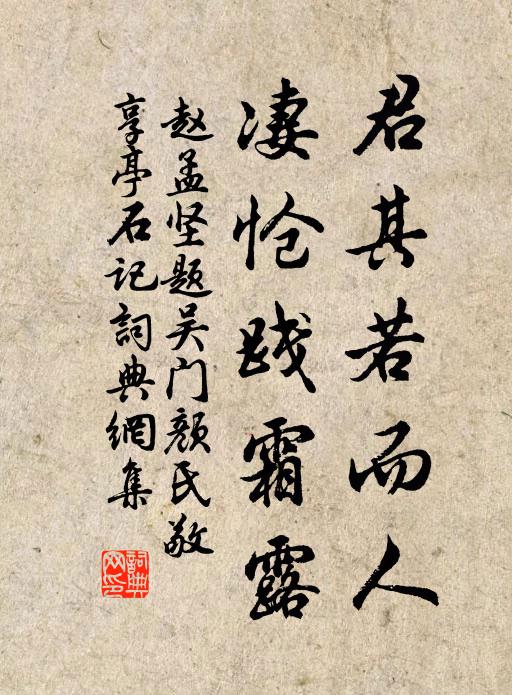 君其若而人
凄怆践霜露
赵孟坚题吴门颜氏敬
享亭石记詞典網集
詞典网印